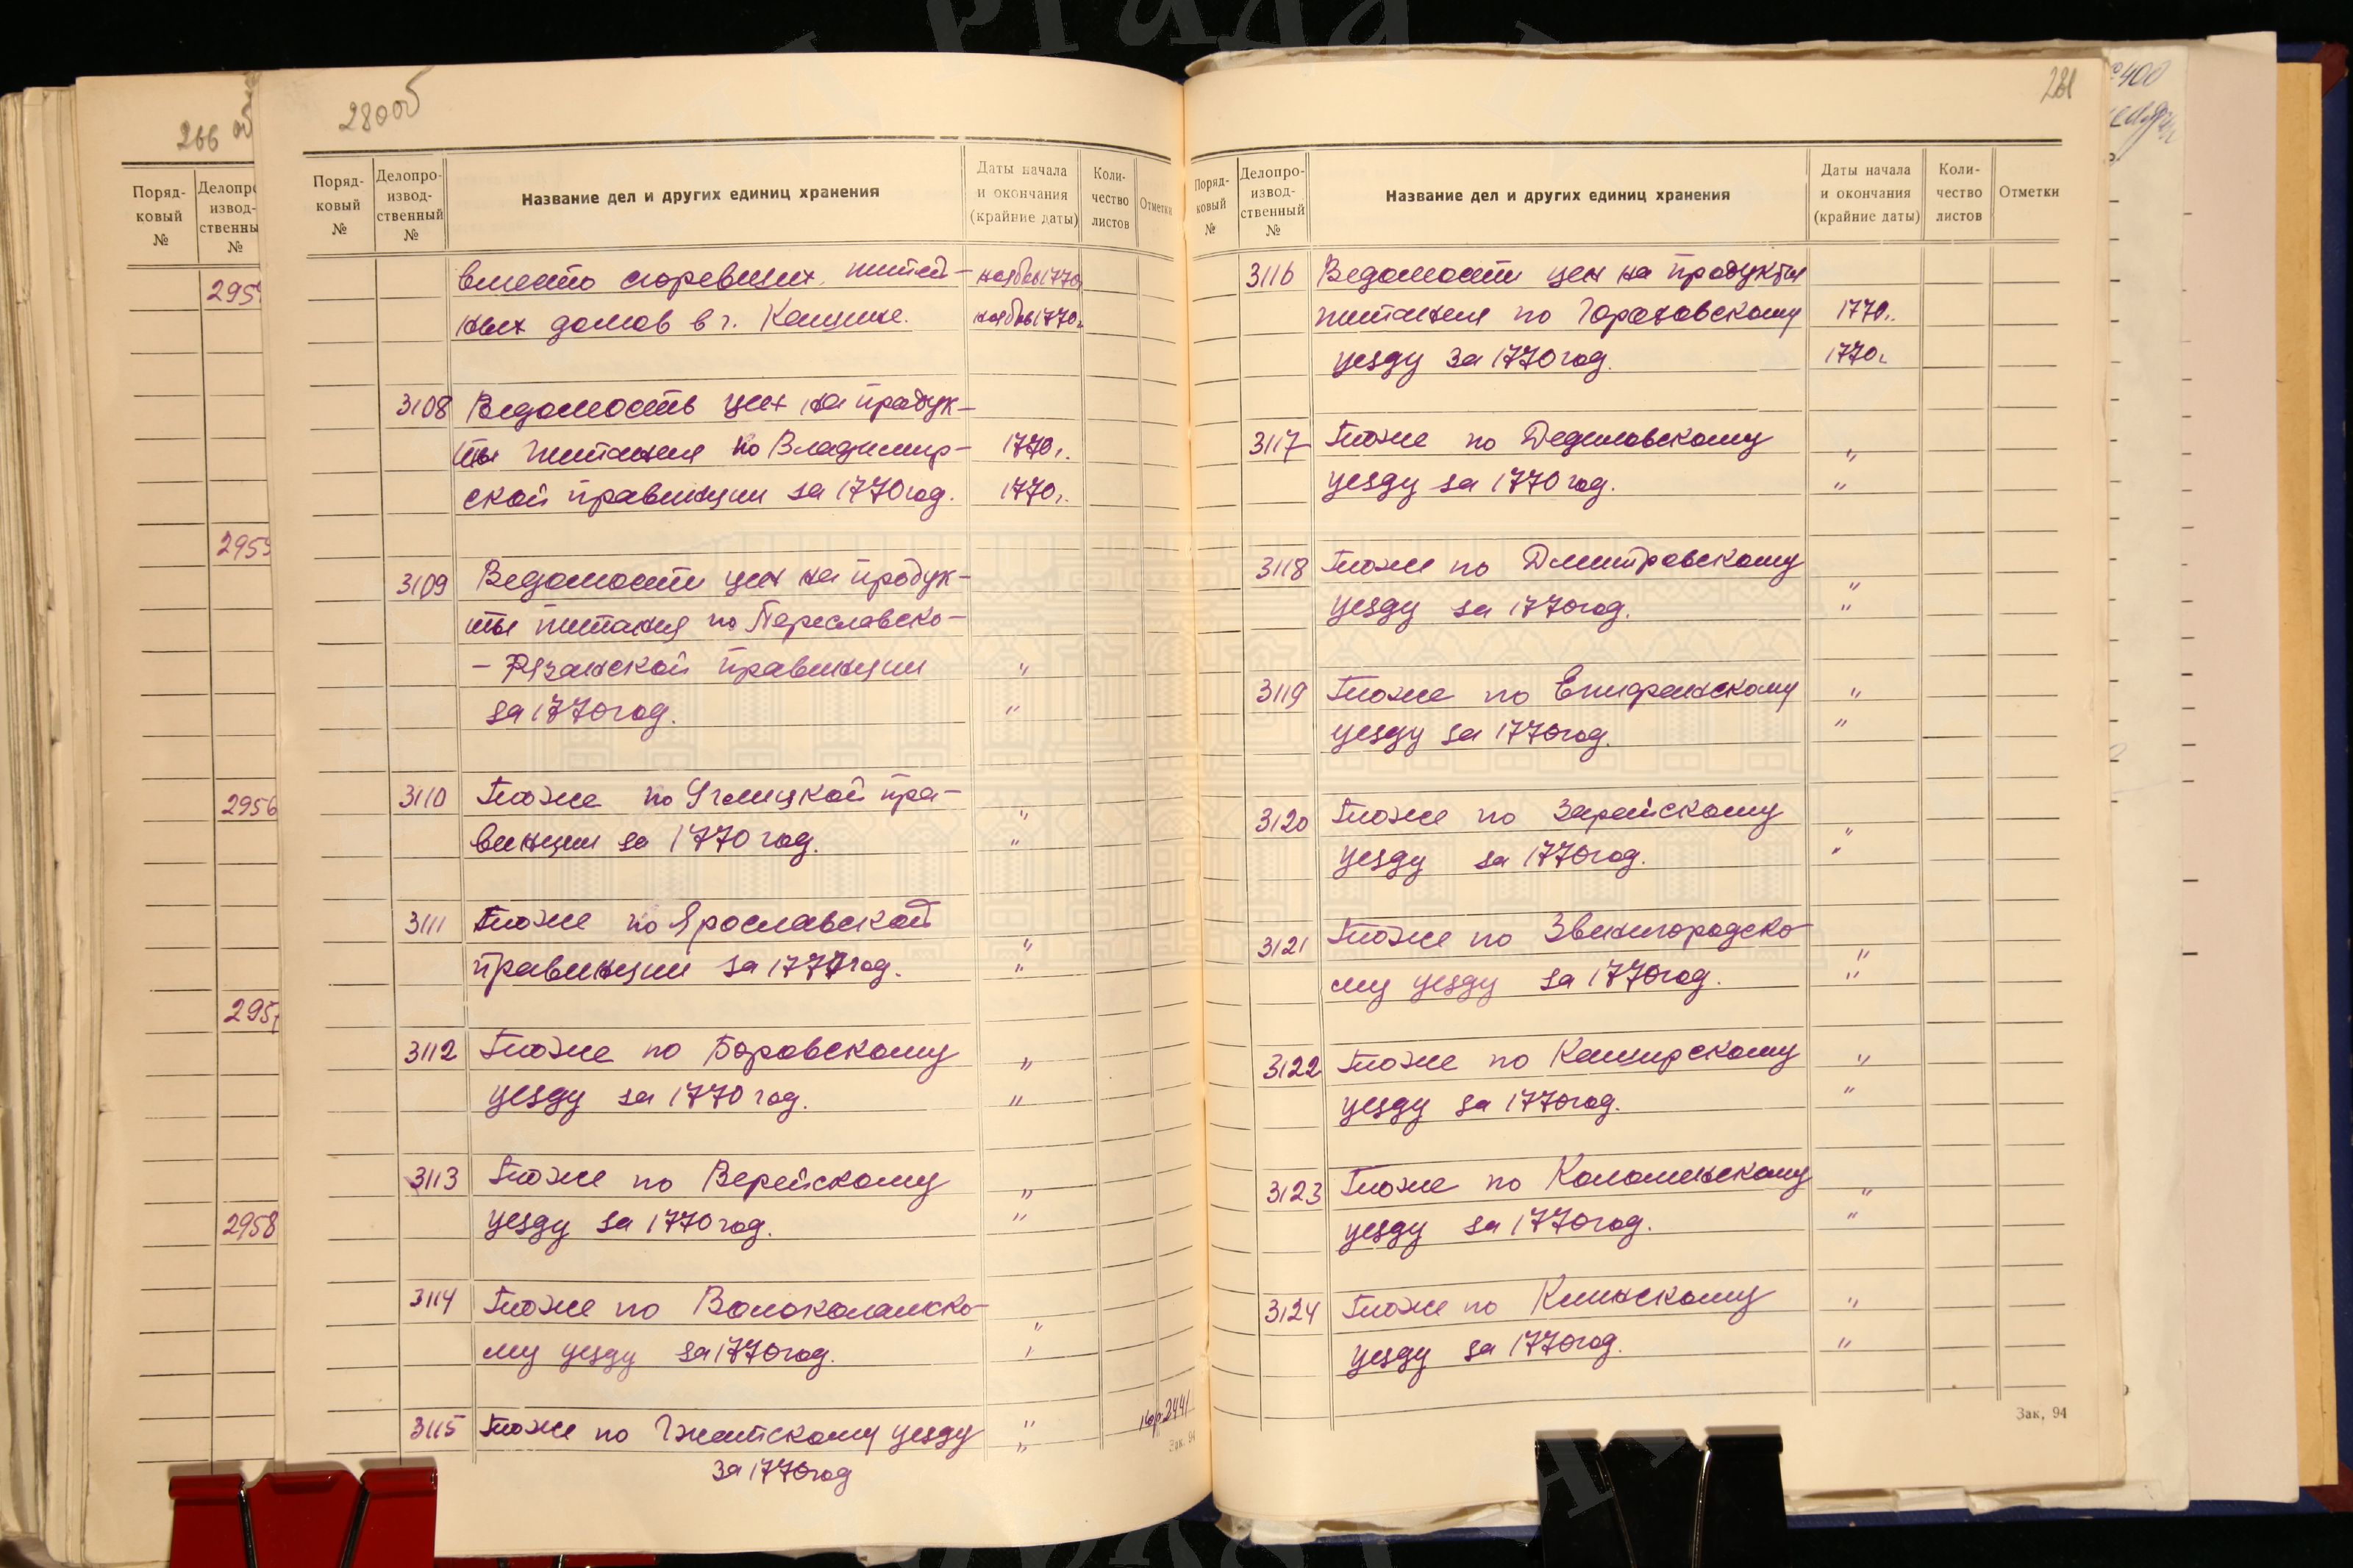 266 об
Поряд-
ковый
№
Делопро
извод-
ственны
№
2955
2956
2958
280об
Поряд-
ковый
№
Делопро-
извод-
ственный
№
Название дел и других единиц хранения
Даты начала
и окончания
(крайние даты)
Коли-
чество
листов
Отметки
вместо сгоревших питей- ноябрь 1770
ных домов в г. Кашине. ноябрь 1770г.
3108 Ведомость цен на продук-
ты питания по Владимир- 1770г.
ской провинции за 1770 год. 1770г.
3109 Ведомости цен на продук-
ты питания по Переславско-
- Рязанской провинции "
за 1770 год. "
3110 То же по Углицкой про- "
винции за 1770 год. "
3111 То же по Ярославской "
провинции за 1770 год. "
3112 То же по Боровскому "
уезду за 1770 год. "
3113 То же по Верейскому "
уезду за 1770 год. "
3114 То же по Волоколамско- "
му уезду за 1770 год. "
3115 То же по Гжатскому уезду "
за 1770 год "
кор. 2441
Зак. 94
281
Поряд-
ковый
№
Делопро-
извод-
ственный
№
Название дел и других единиц хранения
Даты начала
и окончания
(крайние даты)
Коли-
чество
листов
Отметки
3116 Ведомости цен на продукты
питания по Гороховскому 1770г.
уезду за 1770 год. 1770г.
3117 То же по Дедиловскому "
уезду за 1770 год. "
3118 То же по Дмитровскому "
уезду за 1770 год. "
3119 То же по Епифанскому "
уезду за 1770 год. "
3120 То же по Зарайскому "
уезду за 1770 год. "
3121 То же по Звенигородско- "
му уезду за 1770 год. "
3122 То же по Каширскому "
уезду за 1770 год. "
3123 То же по Коломенскому "
уезду за 1770 год. "
3124 То же по Клинскому "
уезду за 1770 год. "
Зак. 94